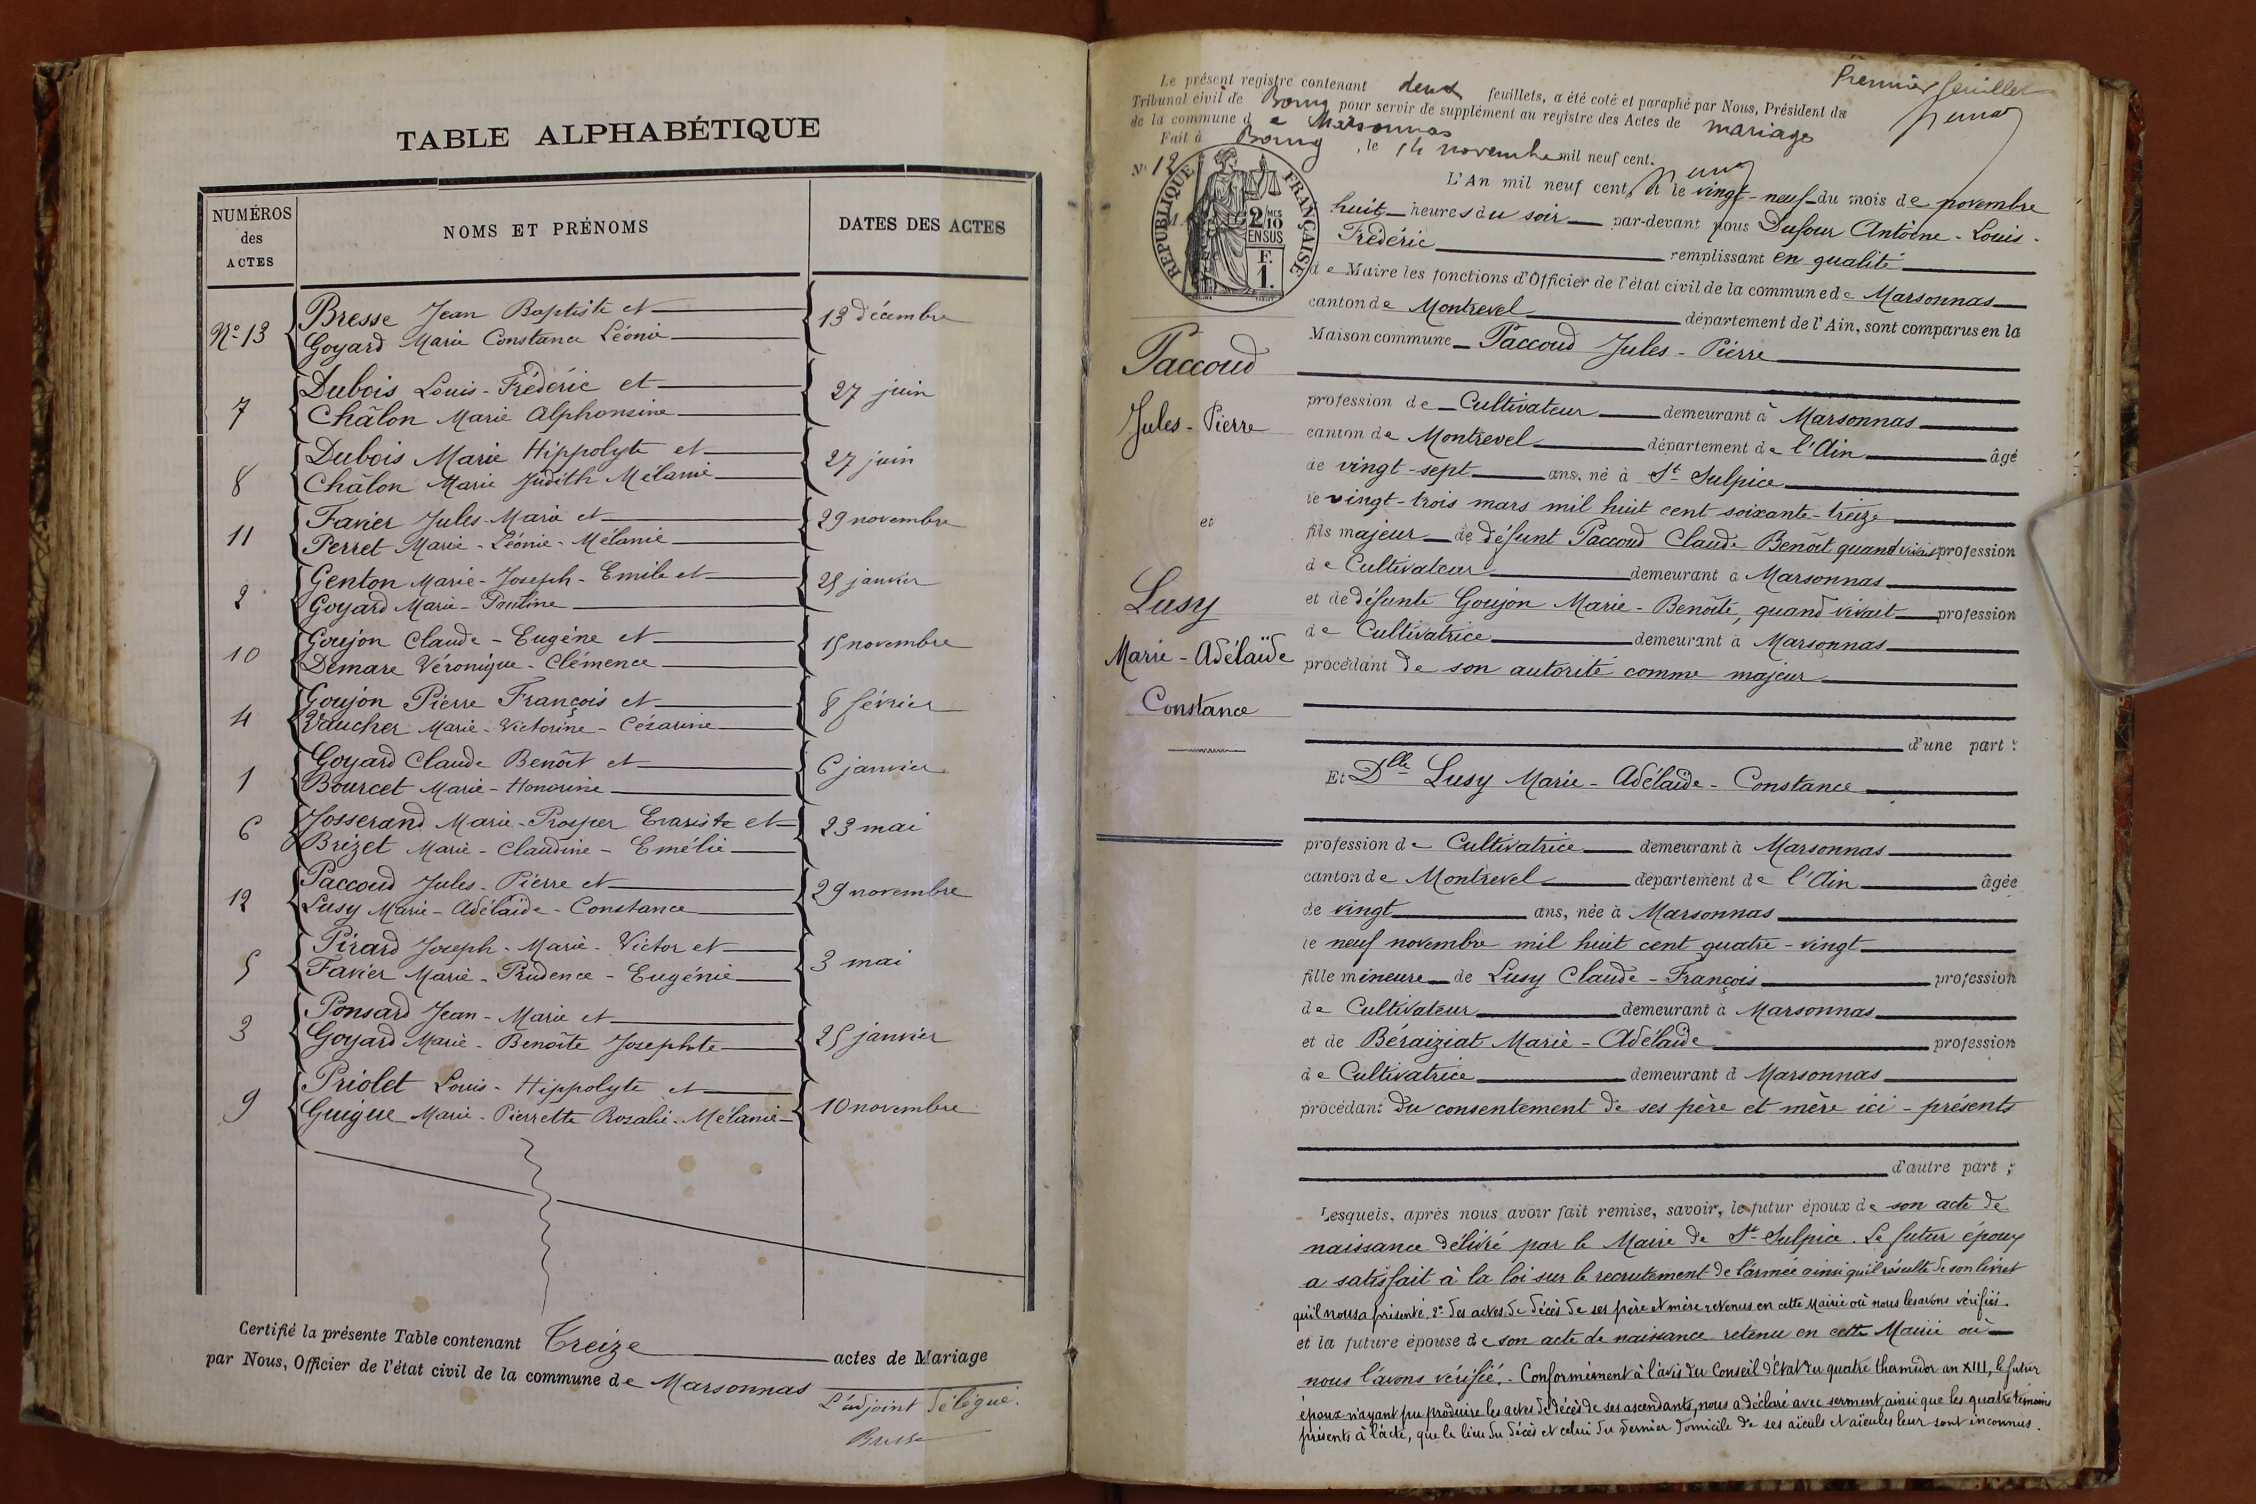 TABLE ALPHABÉTIQUE
NUMÉROS des ACTES
NOMS ET PRÉNOMS
DATES DES ACTES
No 13 Bresse Jean Baptiste et 13 décembre
Goyard Marie Constance Léonie
7 Dubois Louis-Frédéric et 27 juin
Châlon Marie Alphonsine
8 Dubois Marie Hippolyte et 27 juin
Châlon Marie Judith Mélanie
11 Favier Jules-Marie et 29 novembre
Perret Marie-Léonie-Mélanie
2 Genton Marie-Joseph-Emile et 25 janvier
Goyard Marie-Pauline
10 Goujon Claude-Eugène et 15 novembre
Démare Véronique-Clémence
4 Goujon Pierre François et 8 février
Vaucher Marie-Victorine-Cézarine
1 Goyard Claude Benoît et 6 janvier
Bourcet Marie-Honorine
6 Josserand Marie-Prosper Evariste et 23 mai
Brizet Marie-Claudine-Emélie
12 Paccoud Jules-Pierre et 29 novembre
Lusy Marie-Adélaïde-Constance
5 Pirard Joseph-Marie-Victor et 3 mai
Favier Marie-Prudence-Eugénie
3 Ponsard Jean-Marie et 25 janvier
Goyard Marie-Benoîte Josephte
9 Priolet Louis-Hippolyte et 10 novembre
Guigue Marie-Pierrette Rosalie-Mélanie
Certifié la présente Table contenant Treize actes de Mariage
par Nous, Officier de l'état civil de la commune de Marsonnas
L'adjoint délégué.
Bresse
Premier feuillet
Le présent registre contenant deux feuillets, a été coté et paraphé par Nous, Président du
Tribunal civil de Bourg pour servir de supplément au registre des Actes de mariages
de la commune de Marsonnas
Fait à Bourg, le 14 novembre mil neuf cent.
No 12
RÉPUBLIQUE FRANÇAISE
2 MES 10 EN SUS
F. 1.
L'An mil neuf cent, le vingt-neuf du mois de novembre
huit heures du soir par-devant nous Dufour Antoine-Louis-
Frédéric remplissant en qualité
de Maire les fonctions d'Officier de l'état civil de la commune de Marsonnas
canton de Montrevel département de l'Ain, sont comparus en la
Maison commune Paccoud Jules-Pierre
Paccoud
Jules-Pierre
et
Lusy
Marie-Adélaïde
Constance
profession de Cultivateur demeurant à Marsonnas
canton de Montrevel département de l'Ain âgé
de vingt-sept ans, né à St Sulpice
le vingt-trois mars mil huit cent soixante-treize
fils majeur de défunt Paccoud Claude Benoît quand vivait profession
de Cultivateur demeurant à Marsonnas
et de défunte Goujon Marie-Benoîte, quand vivait profession
de Cultivatrice demeurant à Marsonnas
procédant de son autorité comme majeur
d'une part :
Et Dlle Lusy Marie-Adélaïde-Constance
profession de Cultivatrice demeurant à Marsonnas
canton de Montrevel département de l'Ain âgée
de vingt ans, née à Marsonnas
le neuf novembre mil huit cent quatre-vingt
fille mineure de Lusy Claude-François profession
de Cultivateur demeurant à Marsonnas
et de Béraiziat Marie-Adélaïde profession
de Cultivatrice demeurant à Marsonnas
procédant du consentement de ses père et mère ici-présents
d'autre part ;
Lesquels, après nous avoir fait remise, savoir, le futur époux de son acte de
naissance délivré par le Maire de St Sulpice. Le futur époux
a satisfait à la loi sur le recrutement de l'armée ainsi qu'il résulte de son livret
qu'il nous a présenté, 2° des actes de décès de ses père et mère retenus en cette Mairie où nous les avons vérifiés.
et la future épouse de son acte de naissance retenu en cette Mairie où
nous l'avons vérifié. - Conformément à l'avis du Conseil d'Etat du quatre thermidor an XIII, le futur
époux n'ayant pu produire les actes de décès de ses ascendants, nous a déclaré avec serment, ainsi que les quatre témoins
présents à l'acte, que le lieu du décès et celui du dernier domicile de ses aïeuls et aïeules leur sont inconnus.